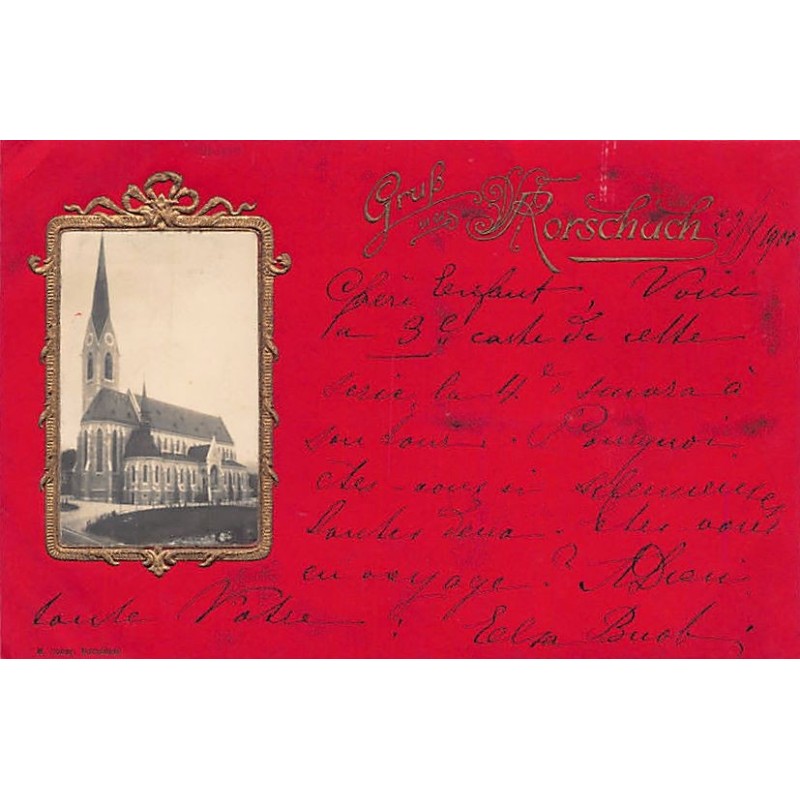 Gruß aus Rorschach 1900
Chère Enfant, Voici
la 3e carte de cette
serie, la 4e suivra à
son tour. Pourquoi
êtes-vous si silencieuses
toutes deux. êtes vous
en voyage? A Dieu
toute Votre